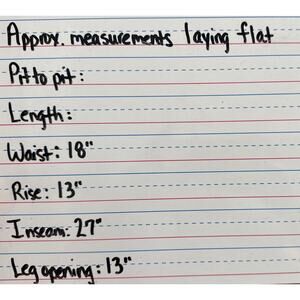 Approx. measurements laying flat
Pit to pit:
Length:
Waist: 18"
Rise: 13"
Inseam: 27"
Leg opening: 13"